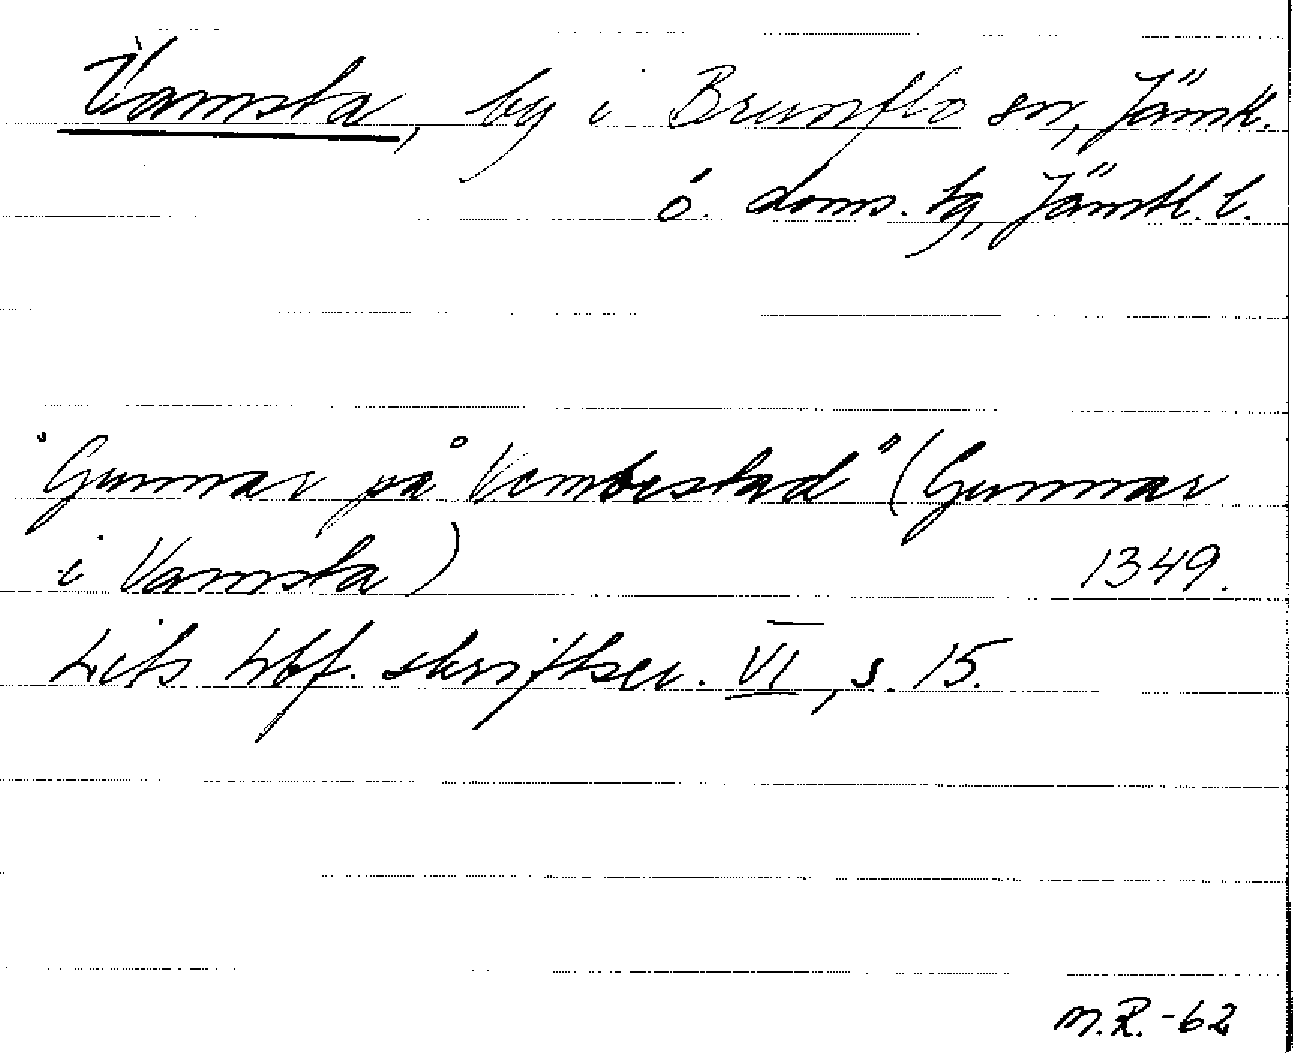 Vamsta, by i Brunflo sn, Jämtl.
ö. doms. tg, Jämtl. l.
"Gunnar på Vembestad" (Gunnar
i Vamsta) 1349.
Lits hbf. skriftser. VI, s. 15.
M.R.-62